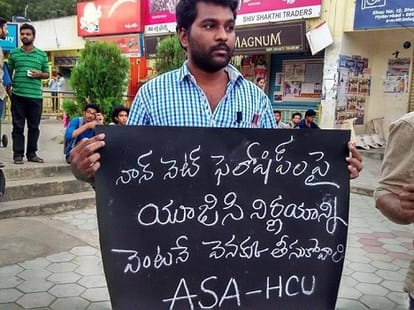 SHIV SHAKTHI TRADERS
MAGNUM
నాన్ నెట్ ఫెలోషిప్‌లపై
యూజిసి నిర్ణయాన్ని
వెంటనే వెనక్కు తీసుకోవాలి
ASA-HCU